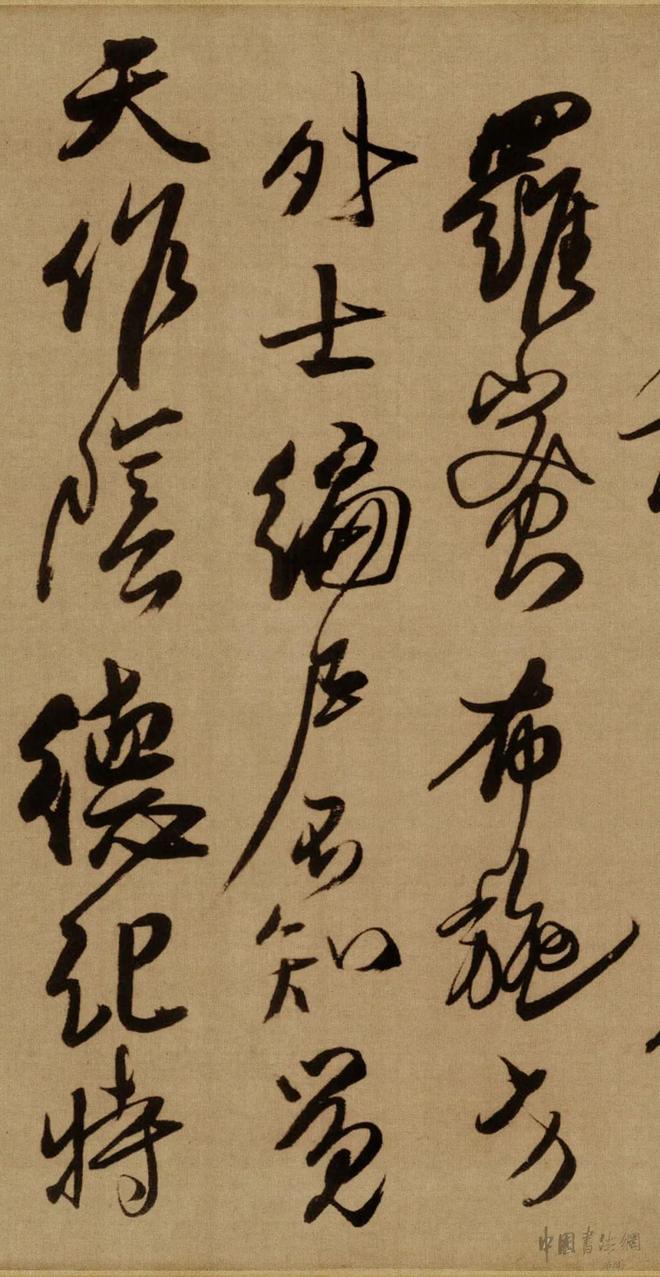 羅蜜布施方
外士編知覺
天作陰德紀特
中國書法網